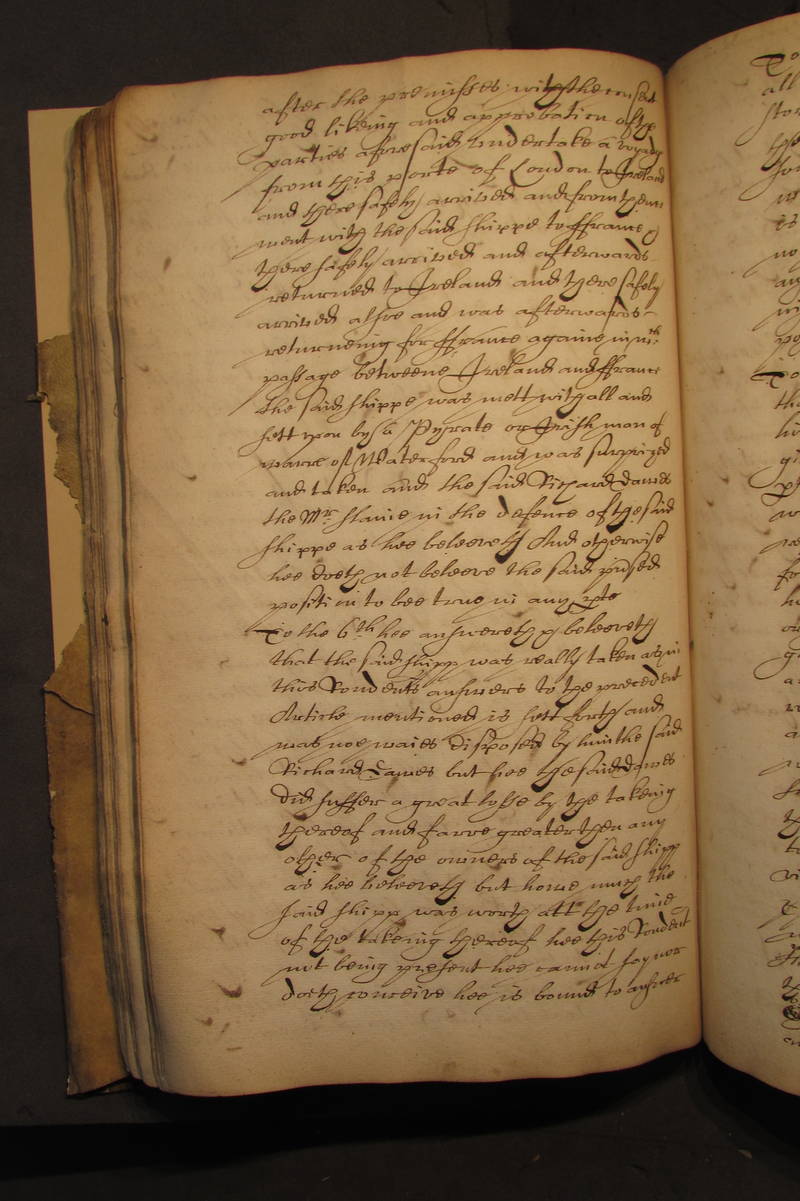 after the premisses with the consent
good likeing and approbation of the
parties aforesaid undertake a voyage
from this porte of London to Ireland
and there safely arrived and from thence
went with the said shippe to ffrance &
there safely arrived and afterwards
returned to Ireland and there safely
arrived alsoe and was afterwards
returneing for ffrance againe in wch:
passage betweene Ireland and ffrance
the said shippe was mett withall and
sett upon by a Pyrate or Irish man of
warre of Waterford and was surprized
and taken and the said Richard Dawes
the Mr slaine in the defence of the said
shippe as hee beleeveth And otherwise
hee doeth not beleeve the said pnsed
position to bee true in any pte
To the 6th hee answereth & beleeveth
that the said shipp was really taken as in
this Rondents answers to the precedent
Article mentioned is sett forth and
was noe waies disposed by him the said
Richard Dawes but hee the said Dawes
did suffer a great losse by the takeing
thereof and farre greater then any
other of the owners of the said shipp
as hee beleeveth but howe much the
said shipp was worth att the time
of the takeing thereof hee this Rondent
not being present hee cannot say nor
doeth conceive hee is bound to answer
To
all